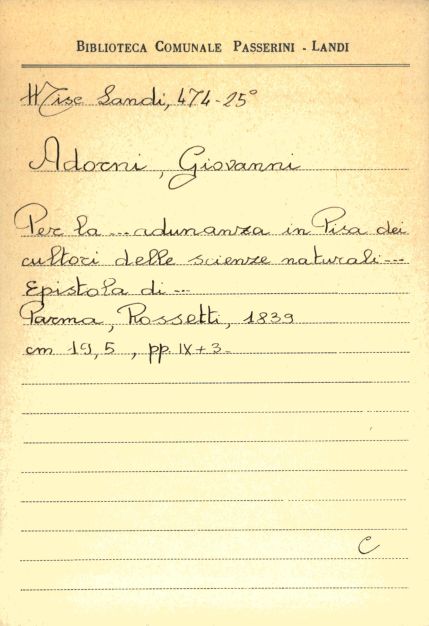 BIBLIOTECA COMUNALE PASSERINI - LANDI
Misc Landi, 474-25°
Adorni, Giovanni
Per la ... adunanza in Pisa dei
cultori delle scienze naturali ...
Epistola di ...
Parma, Rossetti, 1839
cm 19,5, pp. IX+3-
C